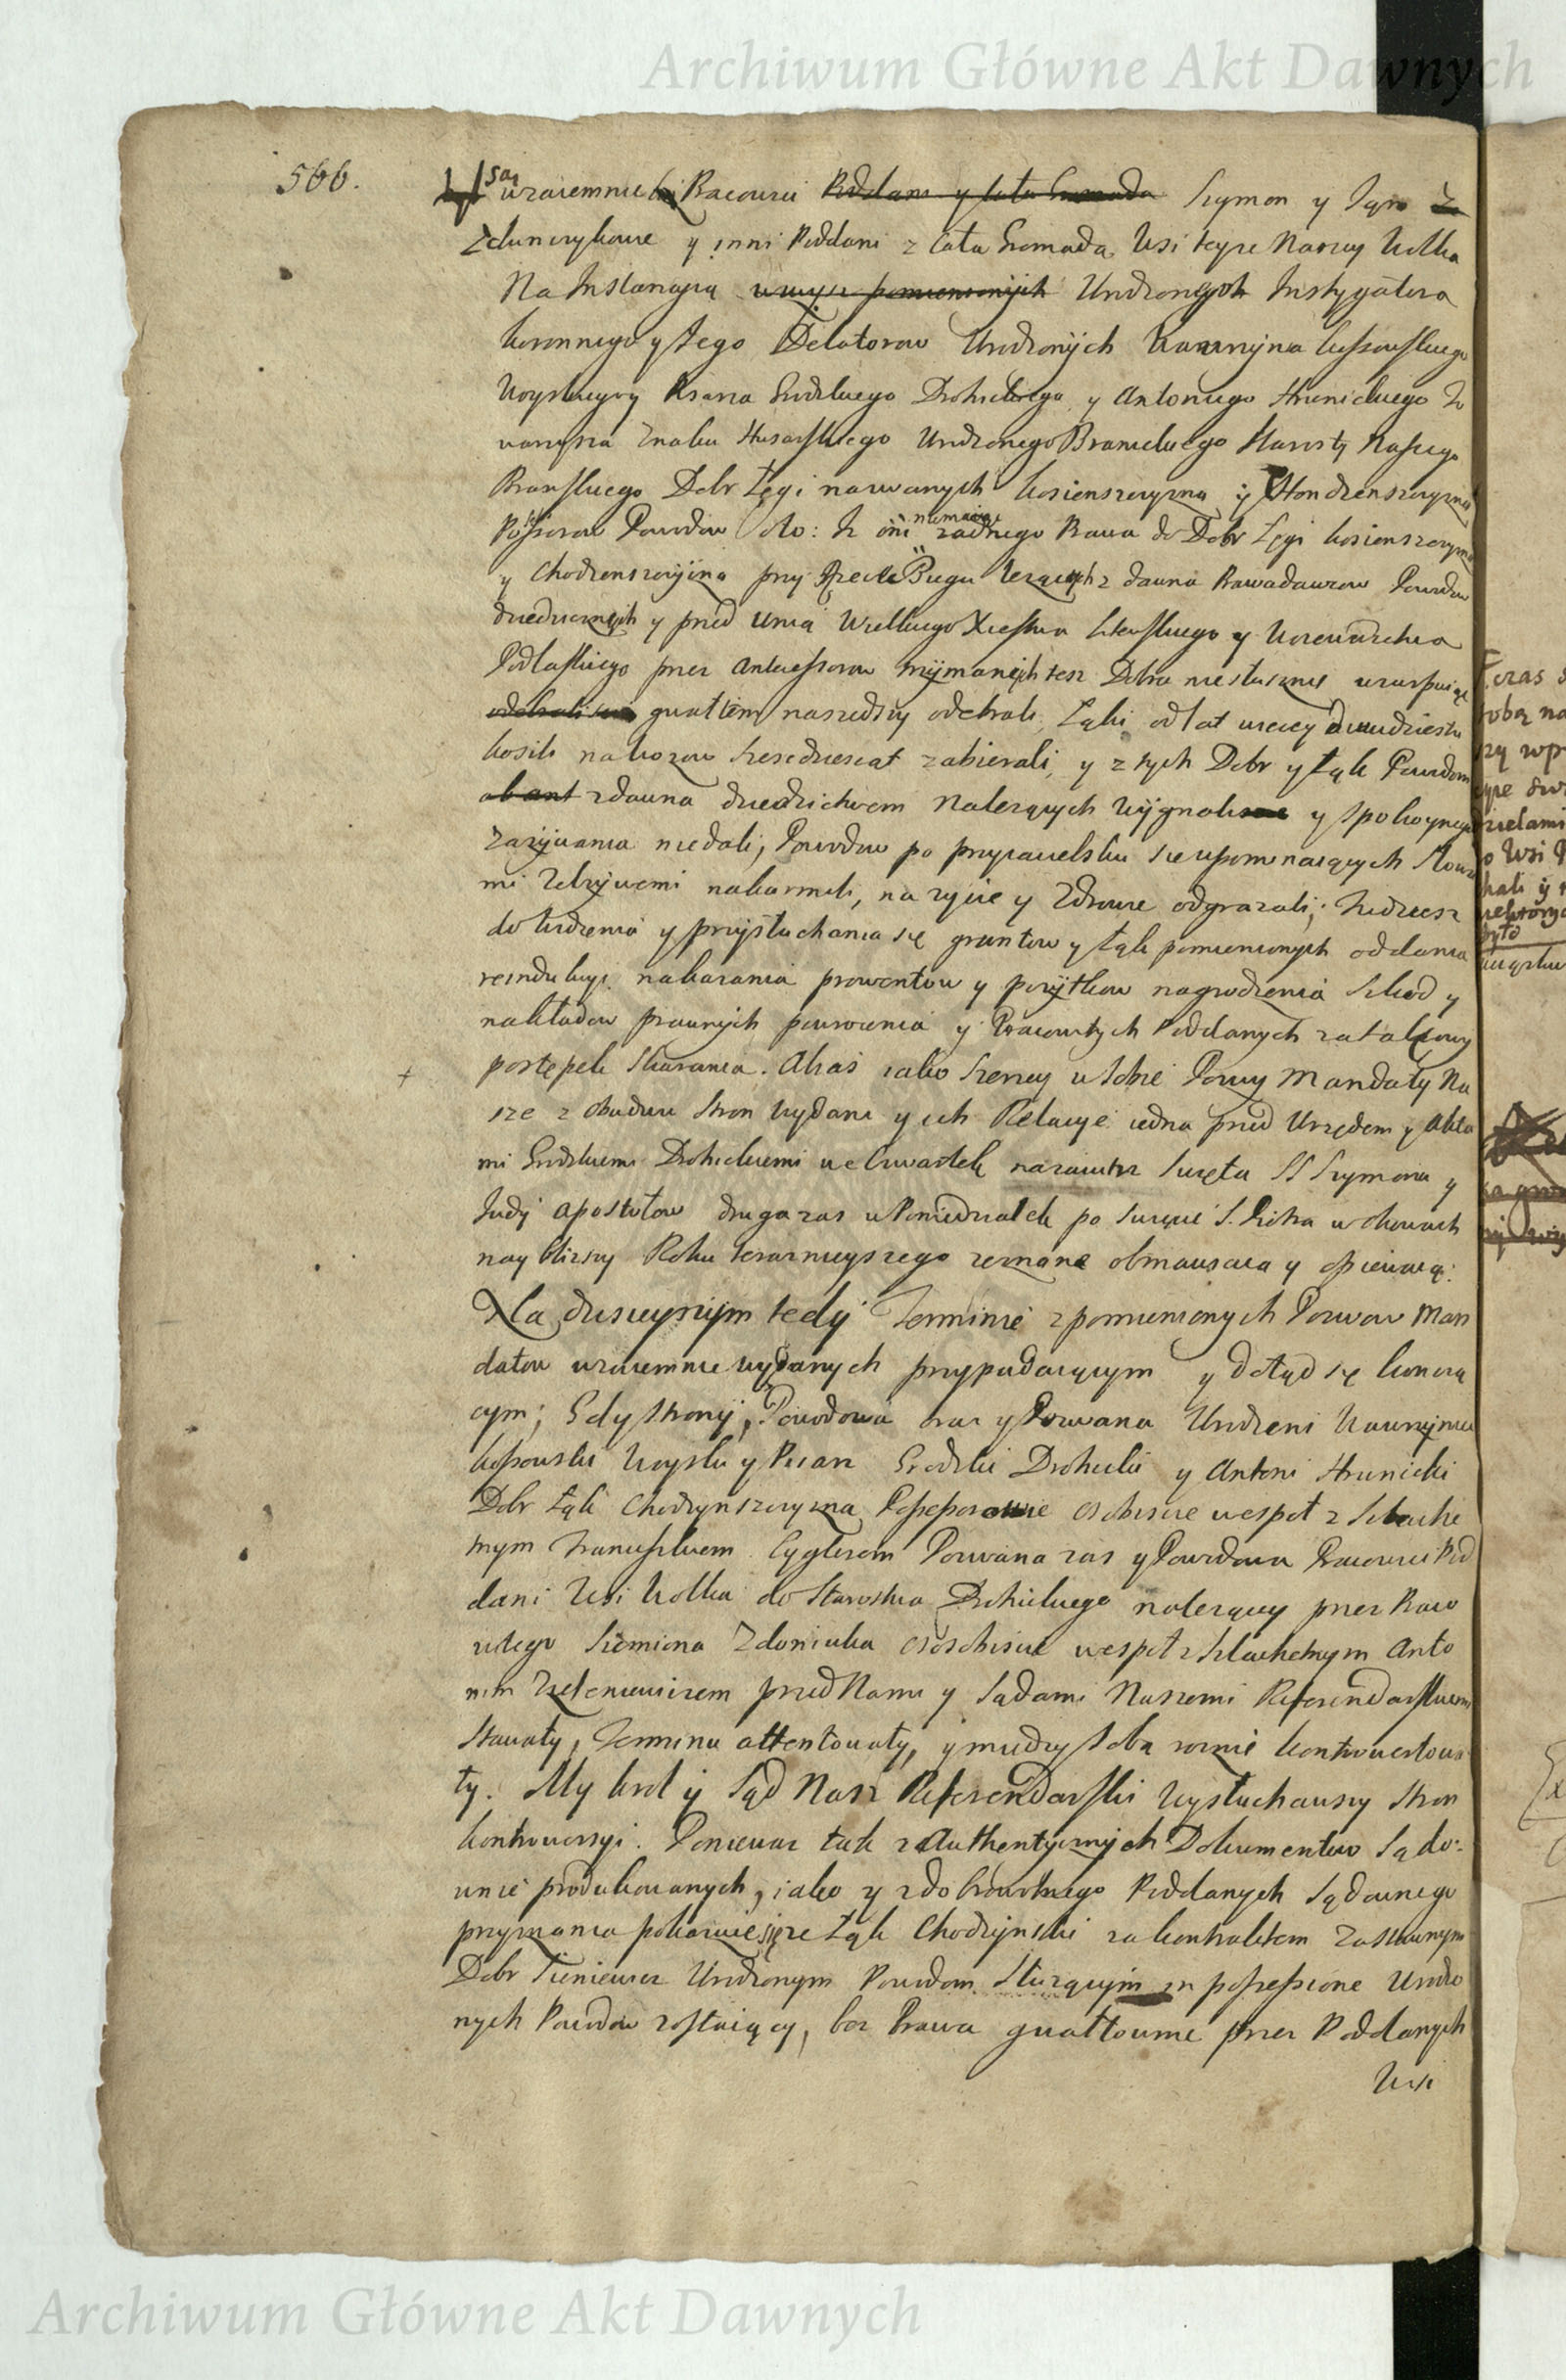 Archiwum Główne Akt Dawnych
566.
są wzaiemnie Pracowici Poddani y cała Gromada Szymon y
Zdunczykowie y inni Poddani z całą Gromadą Wsi teyze Nazwy Wolka
Na Instancyią wwyz pomienionych Urodzonych Instygatora
koronnego y Jego Delatorow Urodzonych Kossowskiego
Woyskiego y Pisarza Grodzkiego Drohickiego y Antoniego Hrunickiego To
warzysza Znaku Husarskiego Urodzonego Branickiego Starosty Naszego
Branskiego Dobr Łęgi nazwanych kosienszczyzna y Hondzenszczyzna
Possessorow Powodow Oto: Iz oni niemaiąc zadnego Prawa do Dobr Łęgi kosienszczyzna
y Chodzenszczyzna przy Rzece Bugu lezących z dawna Prawadawcow Powodow
dziedzicznych y przed Unią Wielkiego Xięstwa Litewskiego y Woiewodztwa
Podlaskiego przez Antecessorow trzymanych tesz Dobra niesłusznie uzurpuiąc
odebrali gwałtem naszedszy odebrali, Łąki od lat wiecey dwudziestu
kosili nawozow szescdziesiąt zabierali, y z tych Dobr y Łąk Powodom
zdawna dziedzictwem Nalezących wygnali y spokoynego
zazywania niedali, Powodow po przyiacielsku sie upominaiących Słowa
mi Zelzywemi nakarmili, na zycie y Zdrowie odgrazali; Tudziesz
do widzenia y przysłuchania się gruntow y Łąk pomienionych oddania
reindukcyi nakazania prowentow y pozytkow nagrodzenia szkod y
nakładow prawnych powrocenia y Pracowitych Poddanych za takowy
postępek skarania. Akas iako szerzey w Sobie Pozwy Mandaty Na
sze z obudwu stron wydane y ich Relacye iedna przed Urzędem y Akta
mi Grodzkiemi Drohickiemi we Czwartek nazaiutrz Swięta SS Szymona y
Judy Apostołow druga zas w Poniedziałek po Swięcie S. Piotra w okowach
nayblizszy Roku teraznieyszego zeznane obmawiaią y opiewaią:
Na dzisieyszym tedy Terminie z pomienionych Pozwow Man
datow wzaiemnie wydanych przypadaiącym y dotąd się konczą
cym; Gdy Strony, Powodowa oraz y Pozwana Urodzeni
Kossowski Woyski y Pisarz Grodzki Drohicki y Antoni Hrunicki
Dobr Łąk Chodzynszczyzna Possessorowie osobiscie wespoł z Szlache
tnym Franciszkiem Cyglerem Pozwana zas y Powodowa Pracowici Pod
dani Wsi Wolka do Starostwa Drohickiego nalezący przez Praco
witego Siemiona Zdoniuka osobiscie wespoł z Szlachetnym Anto
nim Zieleniewiczem przed Nami y Sądami Naszemi Referendarskiemi
Stawały, Terminu attentowały, y miedzy Sobą roznie kontrowertowa
ły. My krol y Sąd Nasz Referendarski Wysłuchawszy Stron
kontrowersyi. Poniewaz tak z Authentycznych Dokumentow Sądo
wnie produkowanych, iako y z dobrowolnego Poddanych Sądownego
przyznania pokazuie się ze Łąk Chodzynski za kontraktem Zastawnym
Dobr Urodzonym Powodom słuzącym in possessione Urodzo
nych Powodow zostaiący, bez Prawa gwałtownie przez Poddanych
Wsi
Archiwum Główne Akt Dawnych